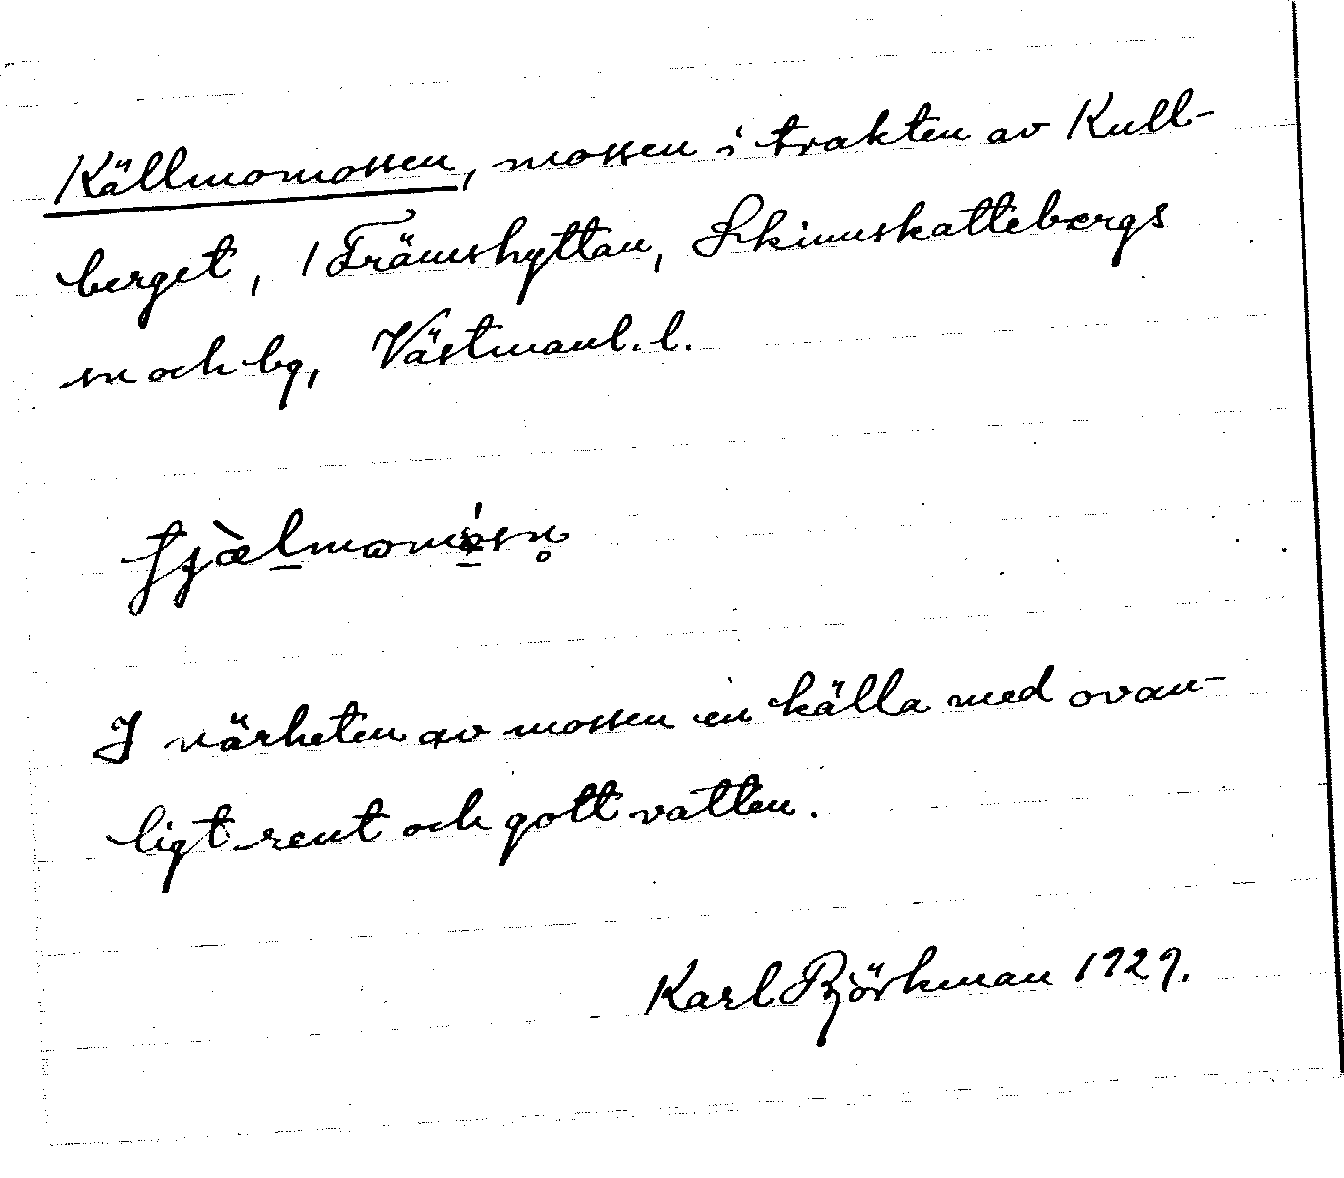 Källmomossen, mossen i trakten av Kull-
berget, 1 Främshyttan, Skinnskattebergs
sn och bg, Västmanl. l.
I närheten av mossen en källa med ovan-
ligt rent och gott vatten.
Karl Björkman 1929.